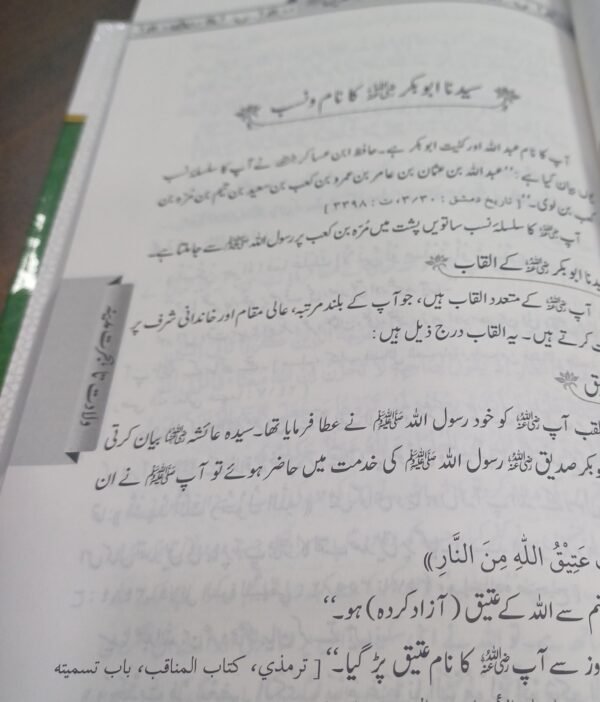 سیدنا ابو بکر رضی اللہ عنہ کا نام و نسب
آپ کا نام عبد اللہ اور کنیت ابو بکر ہے۔ حافظ ابن عساکر نے آپ کا سلسلۂ نسب
یوں بیان کیا ہے: ’’عبد اللہ بن عثمان بن عامر بن عمرو بن کعب بن سعید بن تیم بن مرۃ بن
کعب بن لوی۔‘‘ [ تاریخ دمشق : ۳/۳۰، ت : ۳۳۹۸ ]
آپ رضی اللہ عنہ کا سلسلۂ نسب ساتویں پشت میں مُرّہ بن کعب پر رسول اللہ ﷺ سے جا ملتا ہے۔
ابو بکر رضی اللہ عنہ کے القاب
آپ رضی اللہ عنہ کے متعدد القاب ہیں، جو آپ کے بلند مرتبہ، عالی مقام اور خاندانی شرف پر
کرتے ہیں۔ یہ القاب درج ذیل ہیں:
لقب آپ رضی اللہ عنہ کو خود رسول اللہ ﷺ نے عطا فرمایا تھا۔ سیدہ عائشہ رضی اللہ عنہا بیان کرتی
بو بکر صدیق رضی اللہ عنہ رسول اللہ ﷺ کی خدمت میں حاضر ہوئے تو آپ ﷺ نے ان
عَتِيْقُ اللّٰهِ مِنَ النَّارِ))
تم سے اللہ کے عتیق ( آزاد کردہ ) ہو۔‘‘
روز سے آپ رضی اللہ عنہ کا نام عتیق پڑ گیا۔‘‘ [ ترمذي، كتاب المناقب، باب تسميته
ولادت تا ہجرت مدینہ